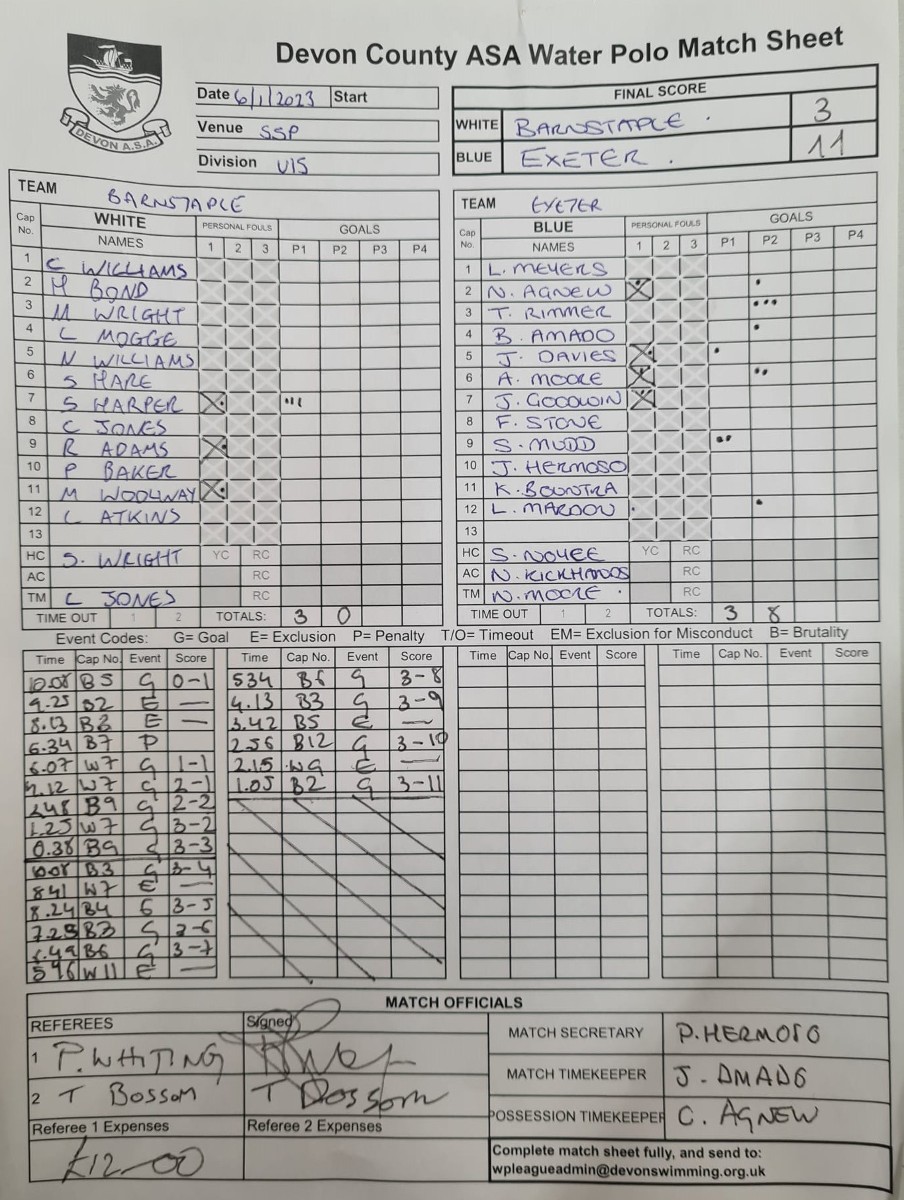 Devon County ASA Water Polo Match Sheet
DEVON A.S.A.
Date 6/1/2023 Start
Venue SSP
Division U15
FINAL SCORE
WHITE BARNSTAPLE 3
BLUE EXETER 11
TEAM BARNSTAPLE
Cap No. WHITE NAMES PERSONAL FOULS 1 2 3 GOALS P1 P2 P3 P4
1 C WILLIAMS
2 H BOND
3 M WRIGHT
4 L MOGGE
5 N WILLIAMS
6 S HARE
7 S HARPER
8 C JONES
9 R ADAMS
10 P BAKER
11 M WOOLWAY
12 L ATKINS
13
HC S. WRIGHT YC RC
AC RC
TM L JONES RC
TIME OUT 1 2 TOTALS: 3 0
TEAM EXETER
Cap No. BLUE NAMES PERSONAL FOULS 1 2 3 GOALS P1 P2 P3 P4
1 L. MEYERS
2 N. AGNEW
3 T. RIMMER
4 B. AMADO
5 J. DAVIES
6 A. MOORE
7 J. GOODWIN
8 F. STONE
9 S. MUDD
10 J. HERMOSO
11 K. BOUNTRA
12 L. MARDON
13
HC S. NOYEE YC RC
AC N. KICKHAMDS RC
TM N. MOORE RC
TIME OUT 1 2 TOTALS: 3 8
Event Codes: G= Goal E= Exclusion P= Penalty T/O= Timeout EM= Exclusion for Misconduct B= Brutality
Time Cap No. Event Score Time Cap No. Event Score Time Cap No. Event Score Time Cap No. Event Score
10.08 B5 G 0-1 534 B6 G 3-8
9.25 B2 E — 4.13 B3 G 3-9
8.13 E — 3.42 B5 E —
6.34 B7 P 256 B12 G 3-10
6.07 W7 G 1-1 2.15 W9 E —
2.12 W7 G 2-1 1.05 B2 G 3-11
148 B9 G 2-2
1.25 W7 G 3-2
0.38 B9 G 3-3
1008 B3 G 3-4
841 W7 E —
8.24 B4 G 3-5
7.28 B3 G 3-6
6.49 B6 G 3-7
596 W11 E —
MATCH OFFICIALS
REFEREES Signed
1 P. WHITING
2 T BOSSOM T Bossom
Referee 1 Expenses Referee 2 Expenses
£12-00
MATCH SECRETARY P. HERMOSO
MATCH TIMEKEEPER J. AMADO
POSSESSION TIMEKEEPER C. AGNEW
Complete match sheet fully, and send to:
wpleagueadmin@devonswimming.org.uk